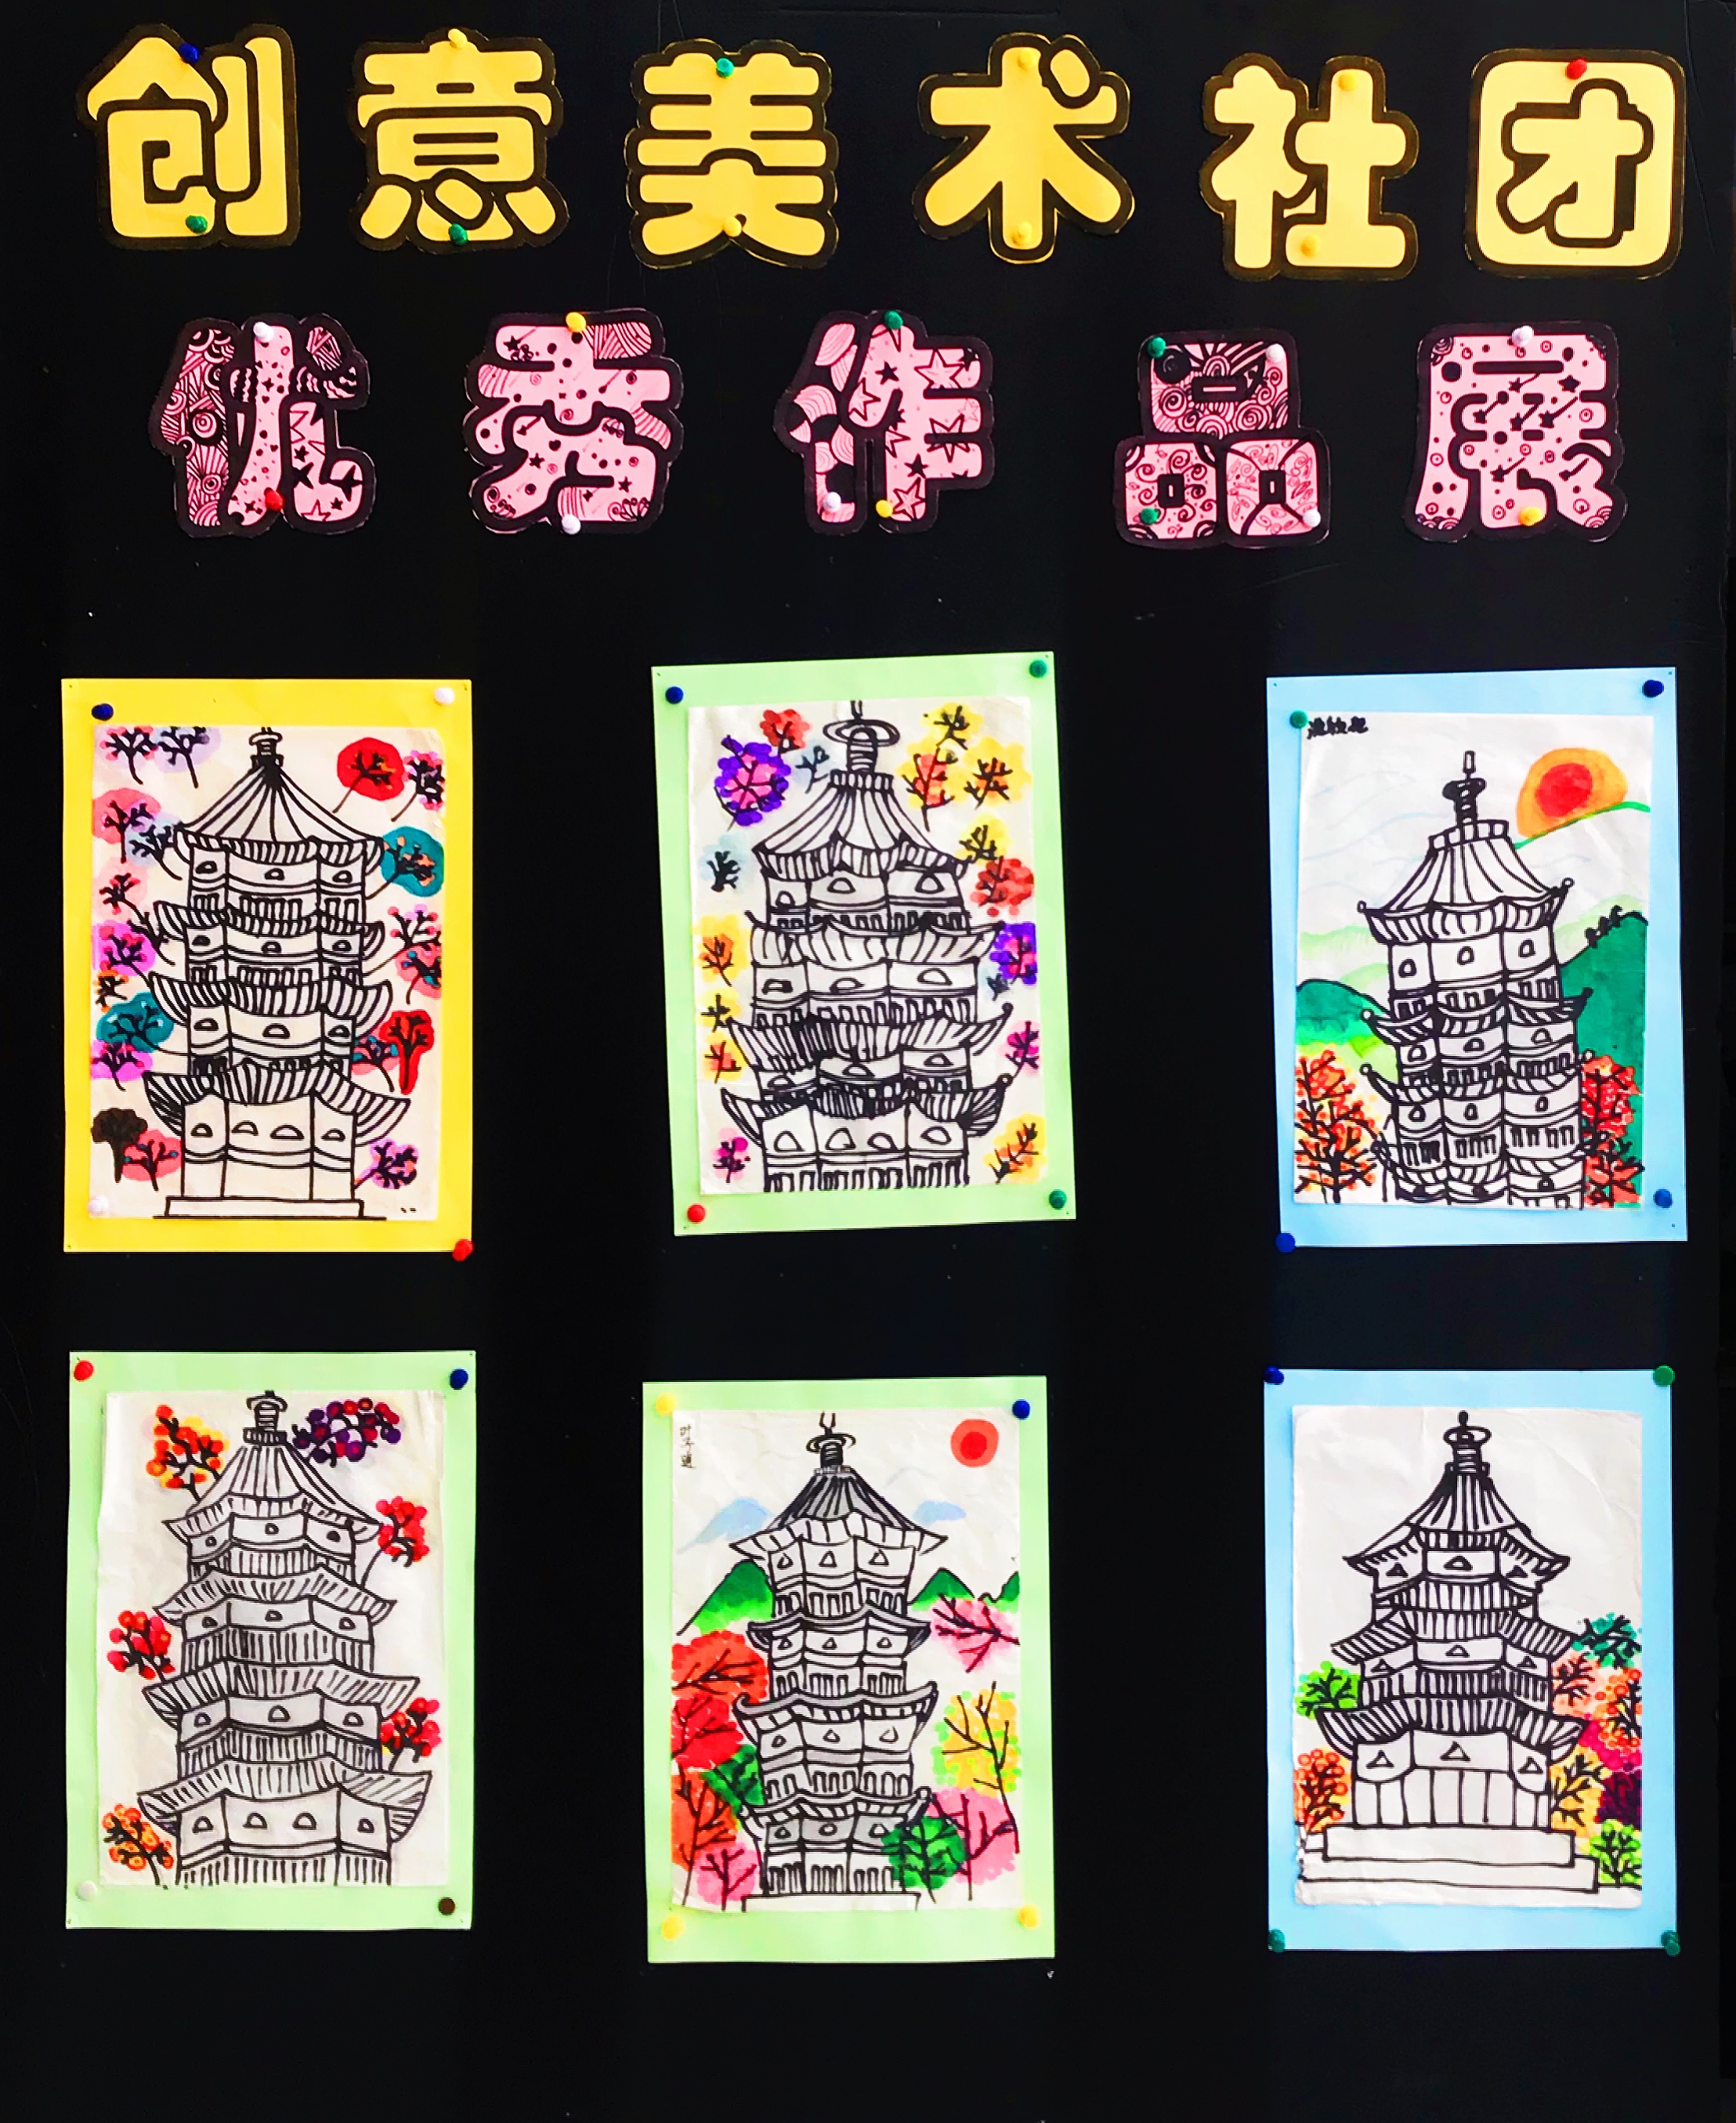 创意美术社团
优秀作品展